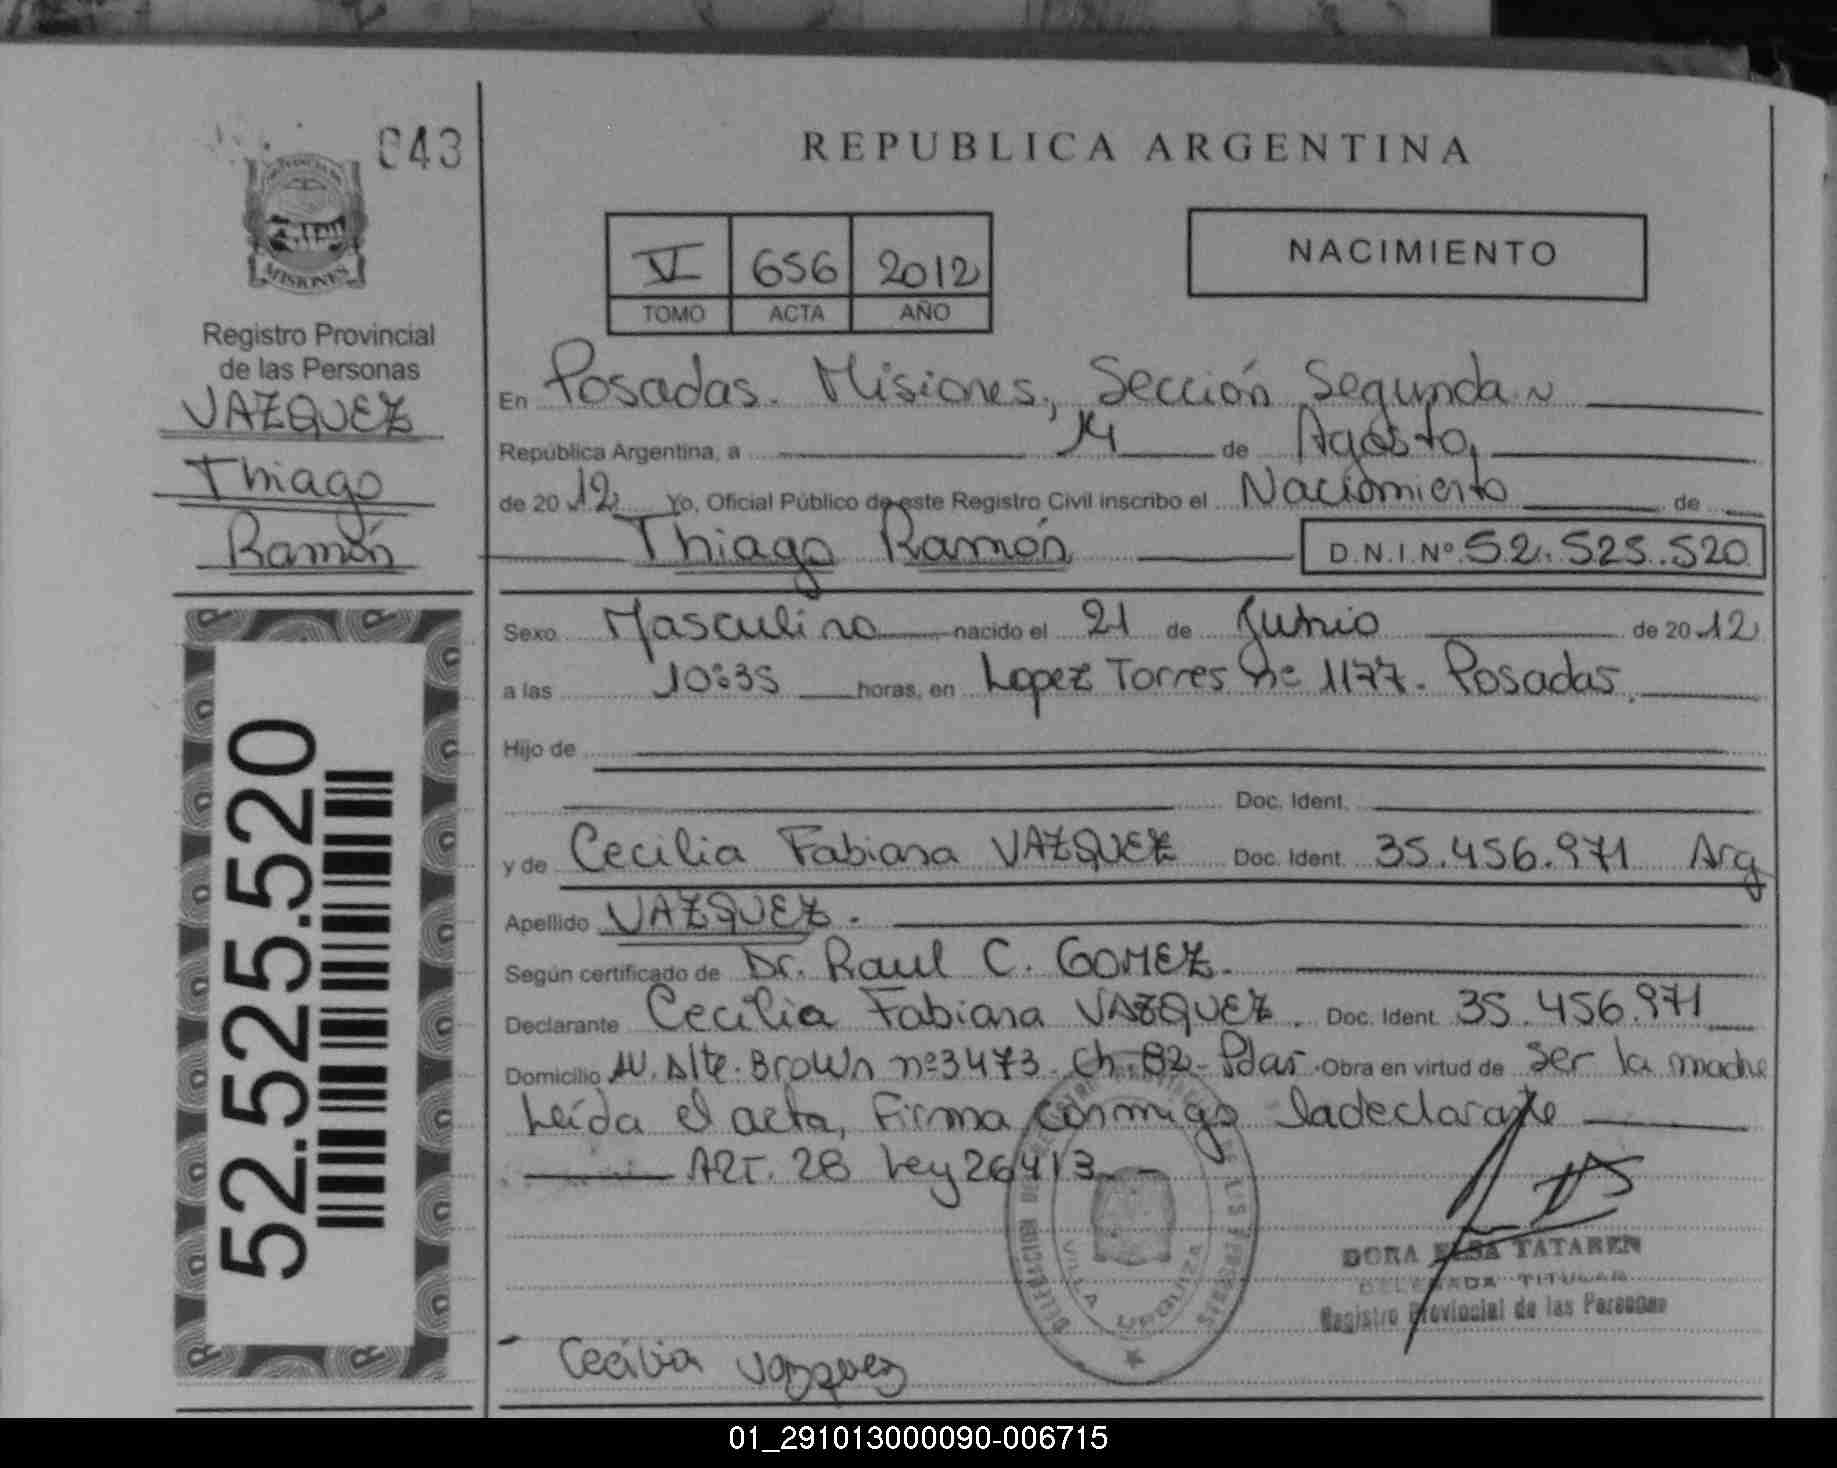 043
MISIONES
Registro Provincial
de las Personas
VAZQUEZ
Thiago
Ramón
52.525.520
REPUBLICA ARGENTINA
VI 656 2012
TOMO ACTA AÑO
NACIMIENTO
En Posadas. Misiones, Sección Segunda
República Argentina, a 14 de Agosto,
de 2012 Yo, Oficial Público de este Registro Civil inscribo el Nacimiento de
Thiago Ramón D.N.I.Nº 52.525.520
Sexo Masculino nacido el 21 de Junio de 2012
a las 10:35 horas, en Lopez Torres Nº 1177. Posadas.
Hijo de
Doc. Ident.
y de Cecilia Fabiana VAZQUEZ Doc. Ident. 35.456.971 Arg
Apellido VAZQUEZ.
Según certificado de Dr. Raul C. GOMEZ.
Declarante Cecilia Fabiana VAZQUEZ. Doc. Ident. 35.456.971
Domicilio AV. Alte. Brown nº 3473. Ch. 82- Pdas. Obra en virtud de ser la madre
Leída el acta, Firma conmigo la declarante
ART. 28 Ley 26413
VILLA URQUIZA
DORA ELSA TATAREN
DELEGADA TITULAR
Registro Provincial de las Personas
Cecilia Vazquez
01_291013000090-006715